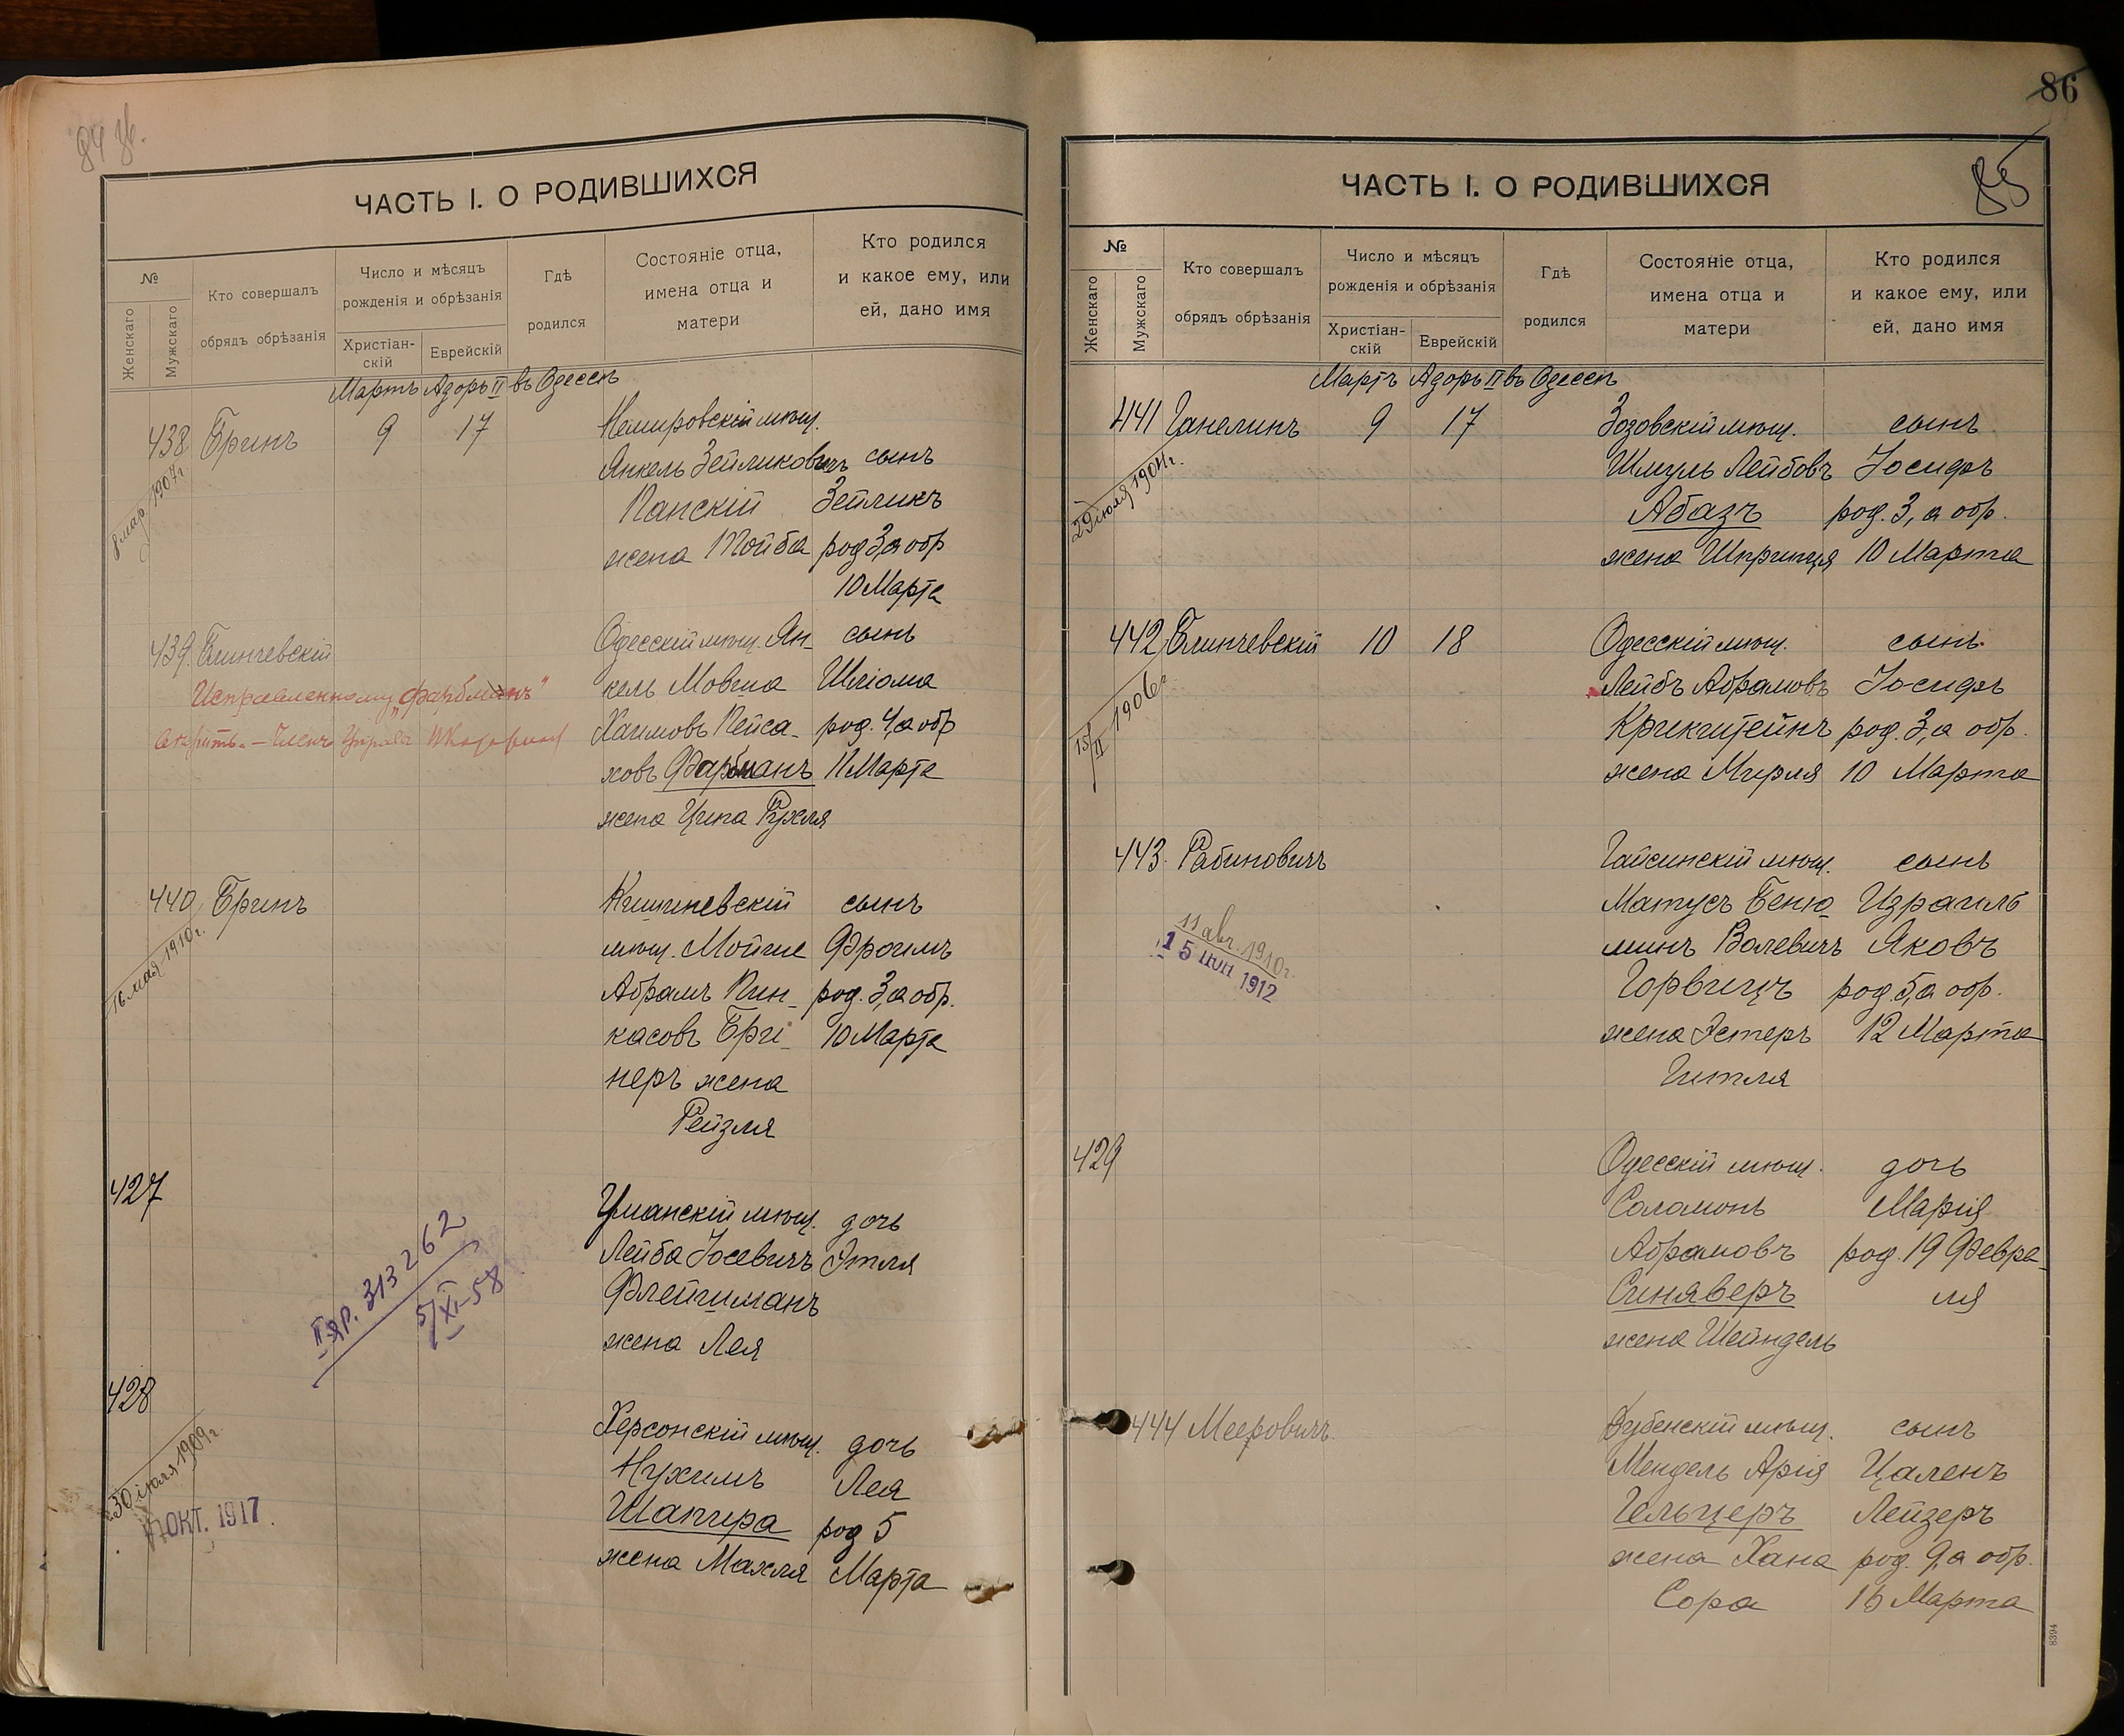 ЧАСТЬ I. О РОДИВШИХСЯ
№
Женскаго
Мужскаго
Кто совершалъ
обрядъ обрѣзанія
Число и мѣсяцъ
рожденія и обрѣзанія
Христіан-
скій
Еврейскій
Гдѣ
родился
Состояніе отца,
имена отца и
матери
Кто родился
и какое ему, или
ей, дано имя
Мартъ Адоръ II въ Одессѣ
438 Бринъ 9 17 Немировскій мѣщ.
Янкель Зейликовичъ сынъ
Папскій Зейликъ
жена Тойба род 3, а обр
10 Марта
8 мар 1907 г.
439. Блинчевскій Одесскій мѣщ. Ян- сынъ
Исправленному „Фарбманъ"
кель Мовша Шліома
Хаимовъ Пейса- род. 4, а обр
ховъ Фарбманъ 11 Марта
жена Ципа Рухля
440 Бринъ Кишиневскій сынъ
мѣщ. Мойше Фроимъ
Абрамъ Пин- род. 3, а обр.
касовъ Бри- 10 Марта
неръ жена
Рейзля
16 мая 1910 г.
427 Уманскій мѣщ. дочь
Лейба Іосевичъ Этля
Флейшманъ
жена Лея
II ЯР. 313262
5/XI-58
428 Херсонскій мѣщ. дочь
Нухимъ Лея
Шапира род 5
жена Махля Марта
30 іюля 1909 г.
ОКТ. 1917
86
85
ЧАСТЬ I. О РОДИВШИХСЯ
№
Женскаго
Мужскаго
Кто совершалъ
обрядъ обрѣзанія
Число и мѣсяцъ
рожденія и обрѣзанія
Христіан-
скій
Еврейскій
Гдѣ
родился
Состояніе отца,
имена отца и
матери
Кто родился
и какое ему, или
ей, дано имя
Мартъ Адоръ II въ Одессѣ
441 Ганелинъ 9 17 Зозовскій мѣщ. сынъ
Шмуль Лейбовъ Іосифъ
Абазъ род. 3, а обр.
жена Шпринця 10 Марта
442 Блинчевскій 10 18 Одесскій мѣщ. сынъ
Лейбъ Абрамовъ Іосифъ
Крикштейнъ род. 3, а обр.
жена Мирля 10 Марта
15/II 1906 г
443. Рабиновичъ Гайсинскій мѣщ. сынъ
Матусъ Беню- Израиль
минъ Волевичъ Яковъ
Горвицъ род. 5, а обр.
жена Эстеръ 12 Марта
Гитля
11 авг. 1910 г.
1912
429 Одесскій мѣщ. дочь
Соломонъ Марія
Абрамовъ род. 19 Февра-
Синяверъ ля
жена Шейндель
444 Мееровичъ Дубенскій мѣщ. сынъ
Мендель Арія Цаленъ
Гельцеръ Лейзеръ
жена Хана род. 9, а обр.
Сора 16 Марта
8394